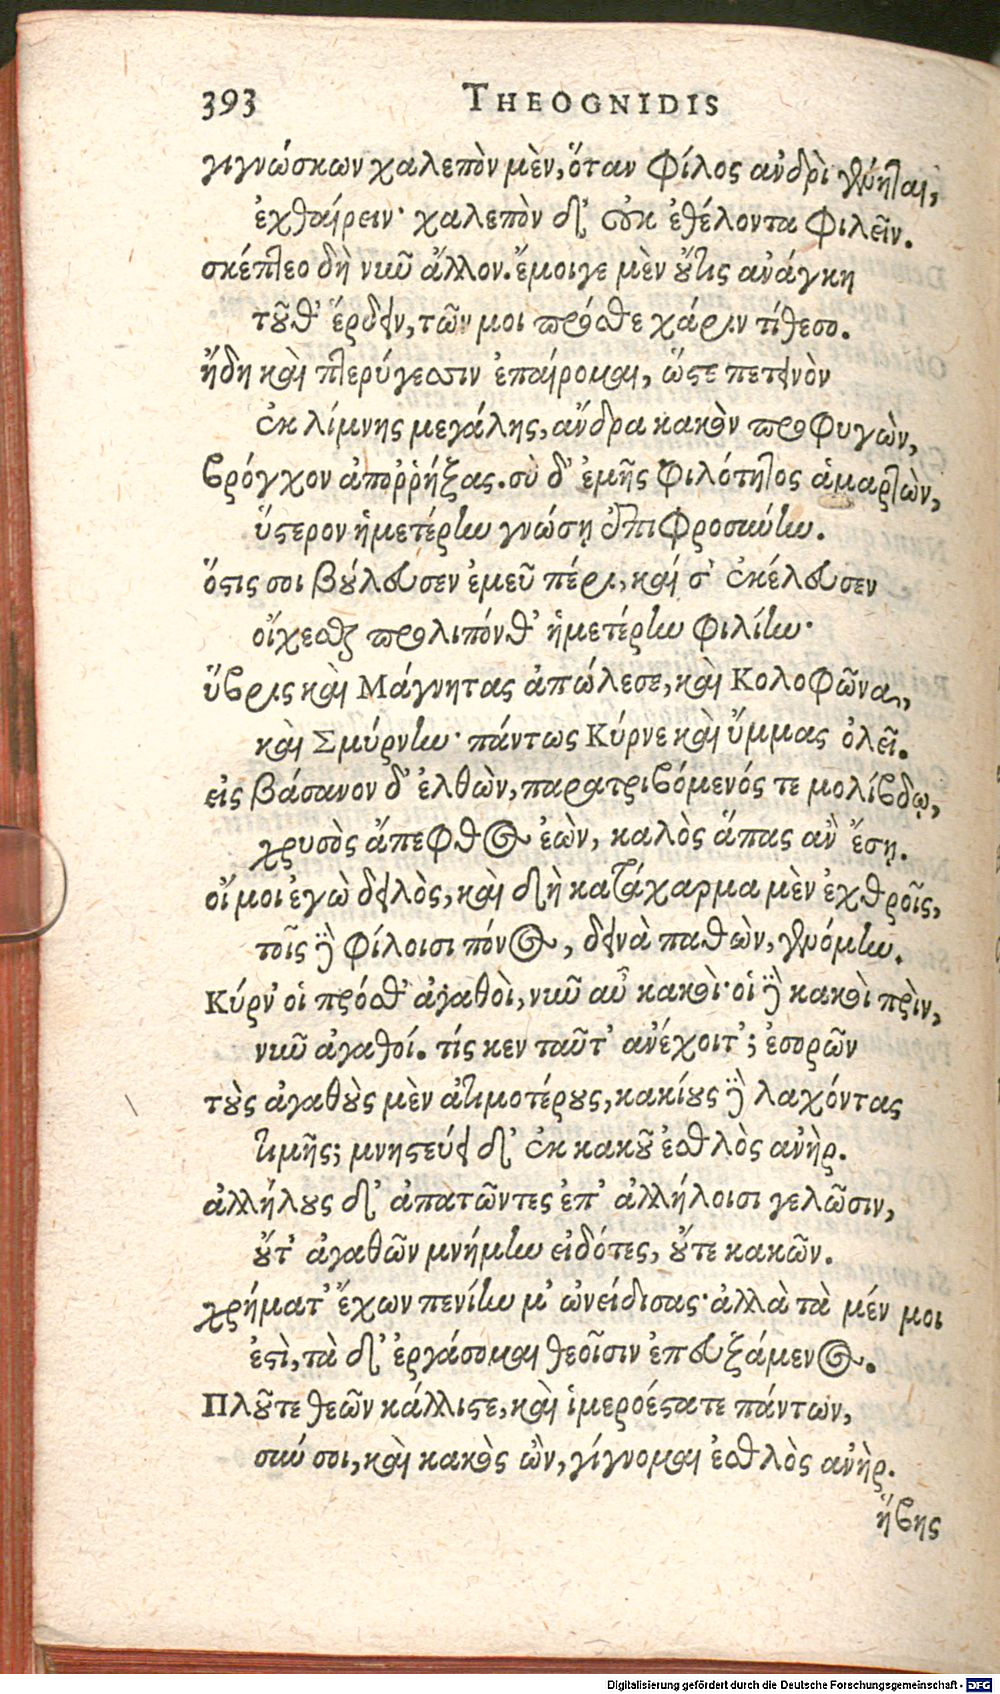 393 THEOGNIDIS
γιγνώσκων χαλεπὸν μὲν, ὅταν φίλος ἀνδρὶ γένηται,
ἐχθαίρειν· χαλεπὸν δ' οὐκ ἐθέλοντα φιλεῖν.
σκέπτεο δὴ νῦν ἄλλον. ἔμοιγε μὲν οὔτις ἀνάγκη
τοῦθ' ἕρδειν, τῶν μοι πρόσθε χάριν τίθεσο.
ἤδη καὶ πτερύγεσσιν ἐπαίρομαι, ὥστε πετεινὸν
ἐκ λίμνης μεγάλης, ἄνδρα κακὸν προφυγὼν,
βρόγχον ἀποῤῥήξας. σὺ δ' ἐμῆς φιλότητος ἁμαρτὼν,
ὕστερον ἡμετέρην γνώσῃ ἐπιφροσύνην.
ὅστις σοι βούλευσεν ἐμεῦ πέρι, καί σ' ἐκέλευσεν
οἴχεσθαι προλιπόνθ' ἡμετέρην φιλίην·
ὕβρις καὶ Μάγνητας ἀπώλεσε, καὶ Κολοφῶνα,
καὶ Σμύρνην· πάντως Κύρνε καὶ ὔμμας ὀλεῖ.
εἰς βάσανον δ' ἐλθὼν, παρατριβόμενός τε μολίβδῳ,
χρυσὸς ἄπεφθος ἐὼν, καλὸς ἅπας ἂν ἔσῃ.
οἴ μοι ἐγὼ δειλὸς, καὶ δὴ κατάχαρμα μὲν ἐχθροῖς,
τοῖς δὲ φίλοισι πόνος, δεινὰ παθὼν, γενόμην.
Κύρν' οἱ πρόσθ' ἀγαθοὶ, νῦν αὖ κακοὶ· οἱ δὲ κακοὶ πρὶν,
νῦν ἀγαθοί. τίς κεν ταῦτ' ἀνέχοιτ'; ἐσορῶν
τοὺς ἀγαθοὺς μὲν ἀτιμοτέρους, κακίους δὲ λαχόντας
τιμῆς; μνηστεύει δ' ἐκ κακοῦ ἐσθλὸς ἀνὴρ.
ἀλλήλους δ' ἀπατῶντες ἐπ' ἀλλήλοισι γελῶσιν,
οὔτ' ἀγαθῶν μνήμην εἰδότες, οὔτε κακῶν.
χρήματ' ἔχων πενίην μ' ὠνείδισας· ἀλλὰ τὰ μέν μοι
ἐστὶ, τὰ δ' ἐργάσομαι θεοῖσιν ἐπευξάμενος.
Πλοῦτε θεῶν κάλλιστε, καὶ ἱμεροέστατε πάντων,
σὺν σοι, καὶ κακὸς ὢν, γίγνομαι ἐσθλὸς ἀνὴρ.
ἥβης
Digitalisierung gefördert durch die Deutsche Forschungsgemeinschaft - DFG